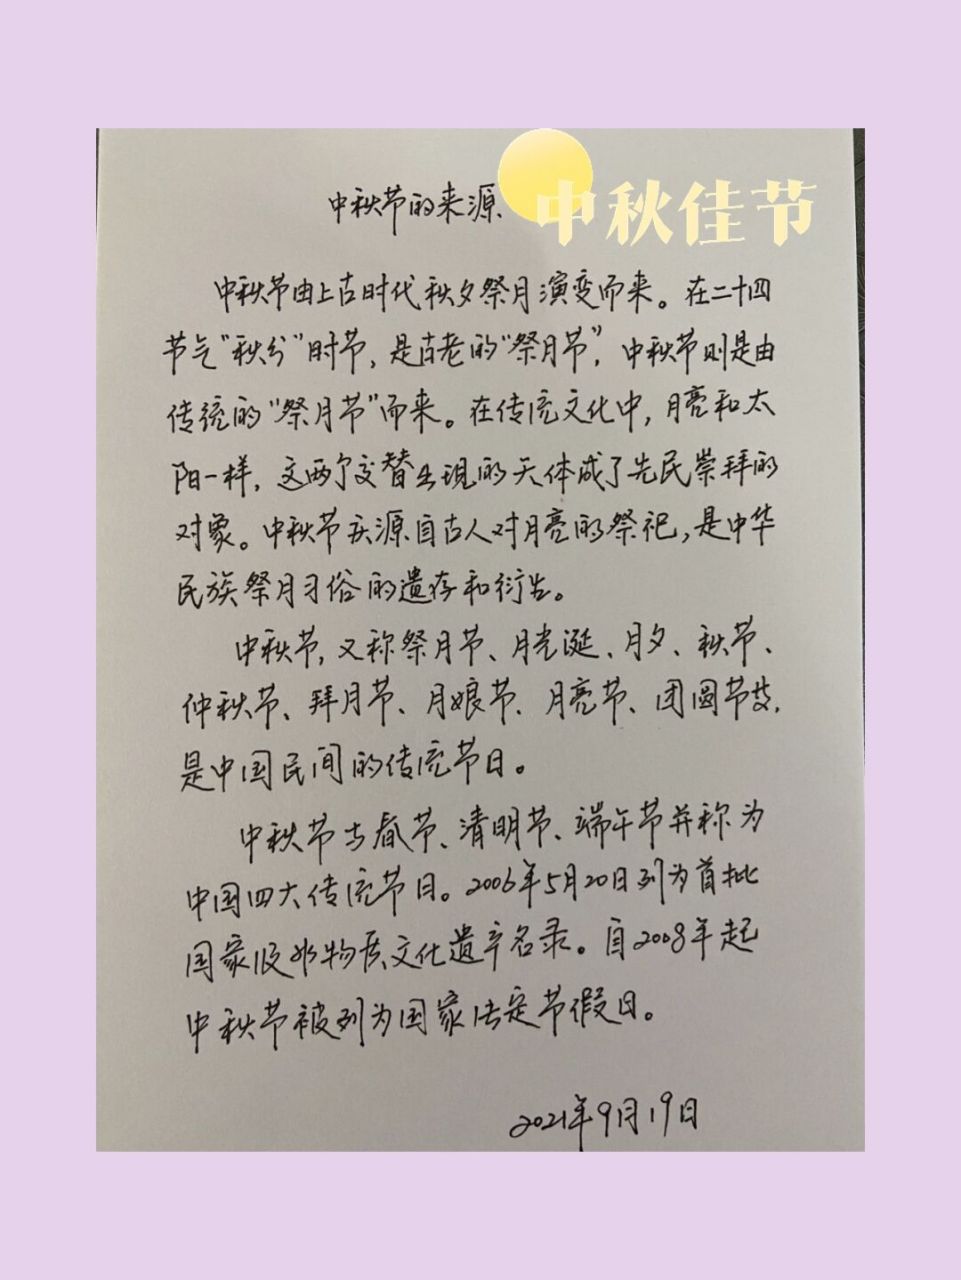 中秋节的来源
中秋佳节
中秋节由上古时代秋夕祭月演变而来。在二十四
节气“秋分”时节,是古老的“祭月节”,中秋节则是由
传统的“祭月节”而来。在传统文化中,月亮和太
阳一样,这两个交替出现的天体成了先民崇拜的
对象。中秋节庆源自古人对月亮的祭祀,是中华
民族祭月习俗的遗存和衍生。
中秋节,又称祭月节、月光诞、月夕、秋节、
仲秋节、拜月节、月娘节、月亮节、团圆节等,
是中国民间的传统节日。
中秋节与春节、清明节、端午节并称为
中国四大传统节日。2006年5月20日列为首批
国家级非物质文化遗产名录。自2008年起
中秋节被列为国家法定节假日。
2021年9月19日